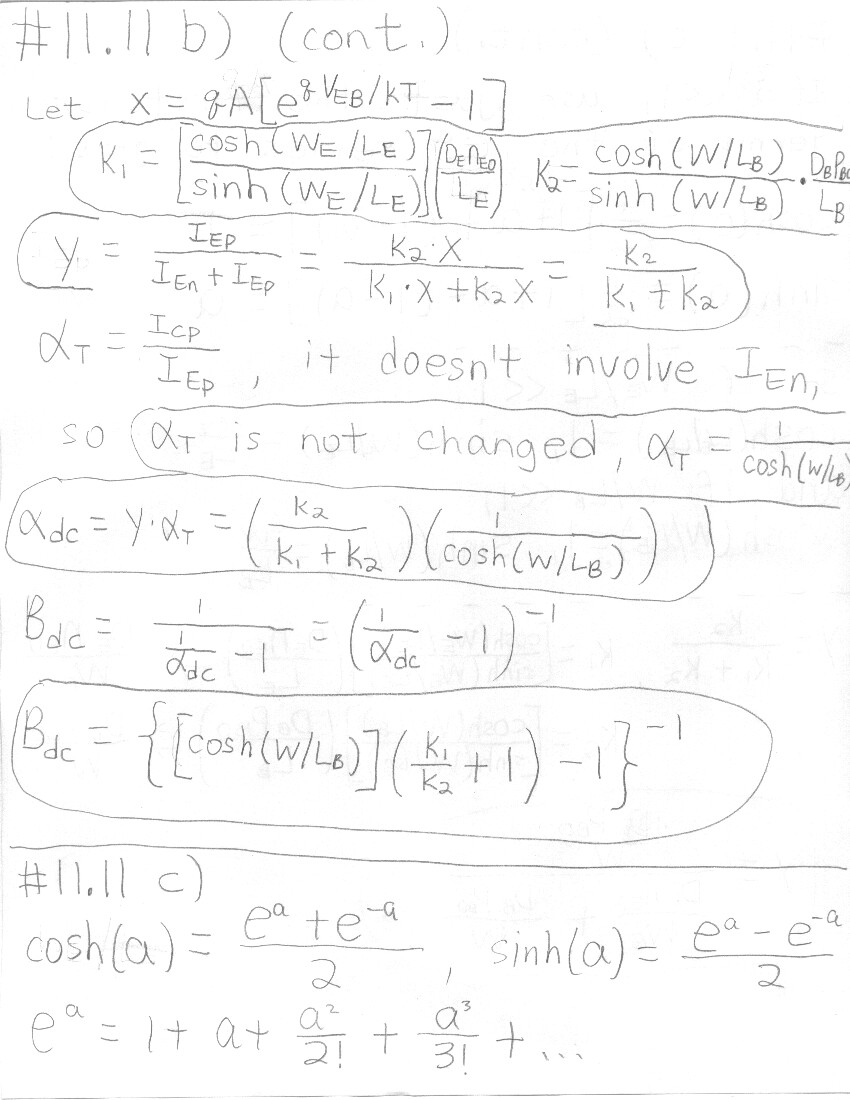 #11.11 b) (cont.)
Let x = qA[e^{qV_{EB}/kT} - 1]
K_1 = [cosh(W_E/L_E) / sinh(W_E/L_E)] (D_E n_{E0} / L_E) K_2 = cosh(W/L_B) / sinh(W/L_B) · D_B P_{B0} / L_B
γ = I_{Ep} / (I_{En} + I_{Ep}) = K_2·x / (K_1·x + K_2 x) = K_2 / (K_1 + K_2)
α_T = I_{Cp} / I_{Ep}, it doesn't involve I_{En},
so α_T is not changed, α_T = 1 / cosh(W/L_B)
α_{dc} = γ·α_T = (K_2 / (K_1 + K_2)) (1 / cosh(W/L_B))
B_{dc} = 1 / (1/α_{dc} - 1) = (1/α_{dc} - 1)^{-1}
B_{dc} = {[cosh(W/L_B)] (K_1/K_2 + 1) - 1}^{-1}
#11.11 c)
cosh(a) = (e^a + e^{-a}) / 2, sinh(a) = (e^a - e^{-a}) / 2
e^a = 1 + a + a^2/2! + a^3/3! + ...